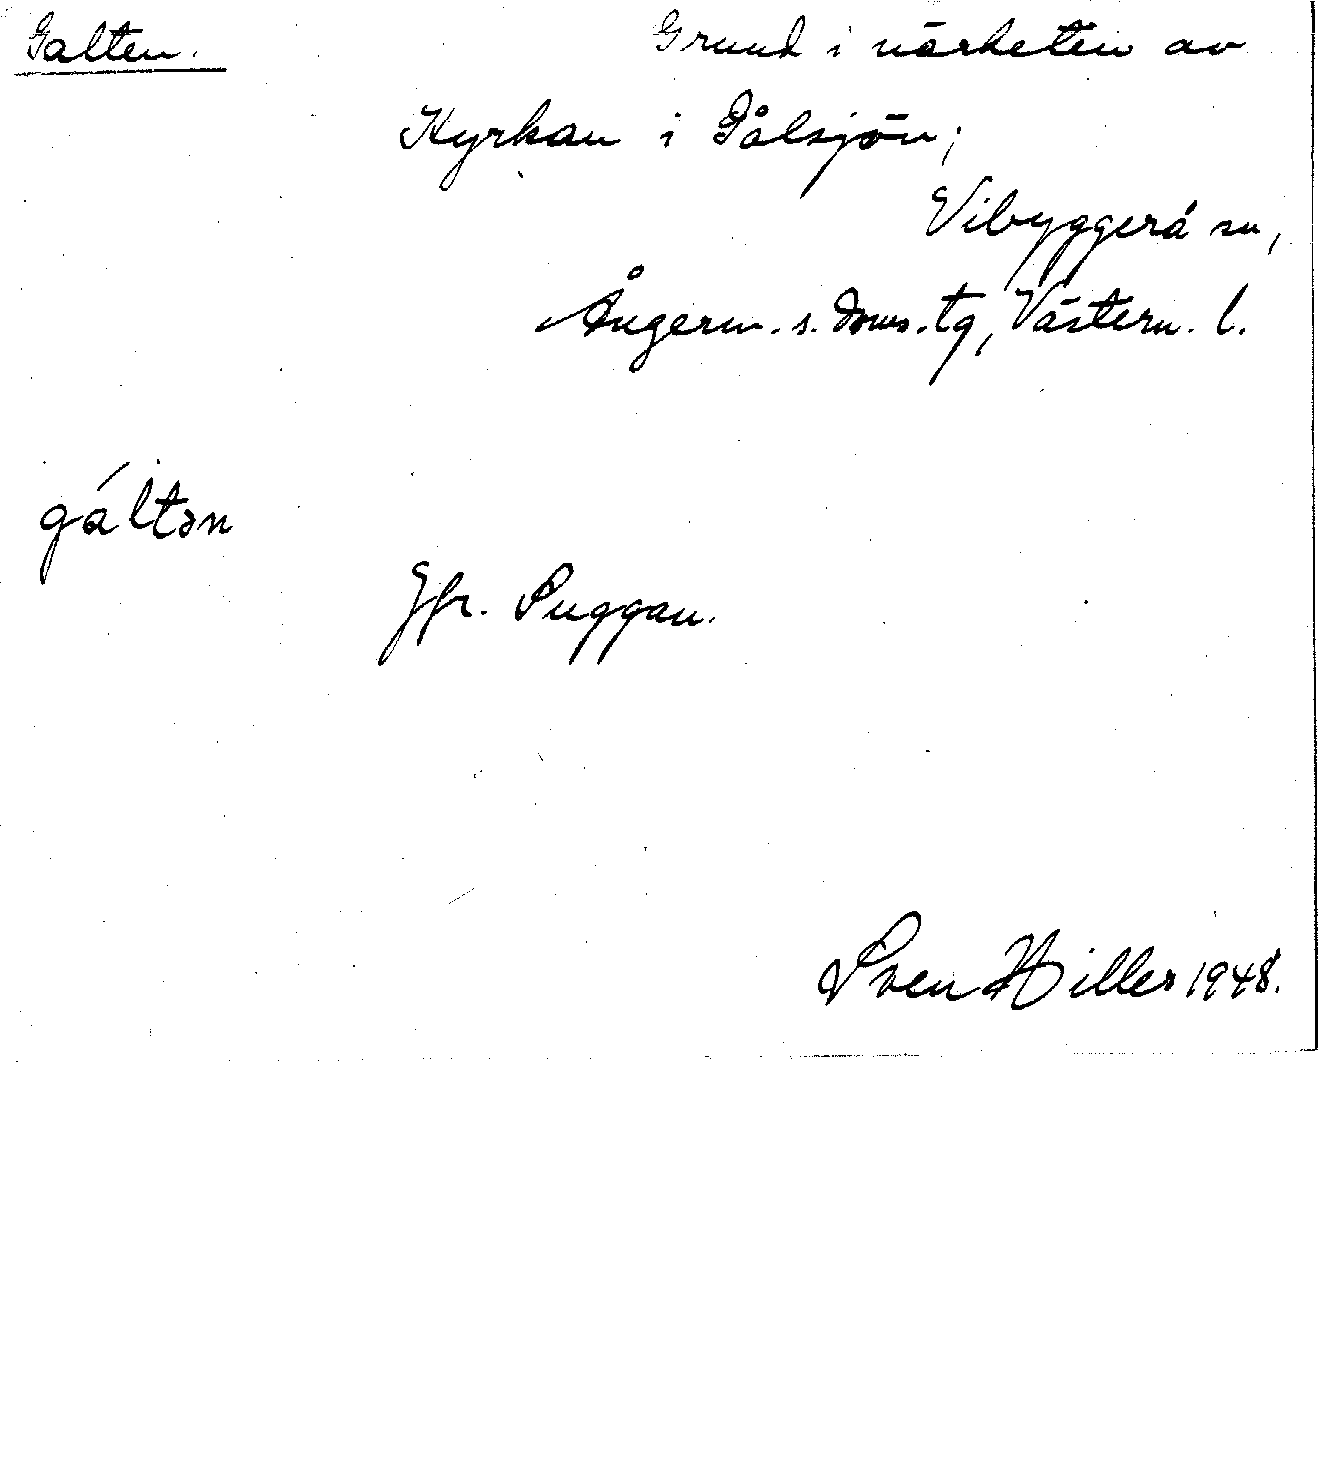 Galten. Grund i närheten av
Kyrkan i Gålsjön;
Vibyggerå sn,
Ångerm. s. doms. tg, Västern. l.
gáltən
Jfr. Suggan.
Sven Hiller 1948.